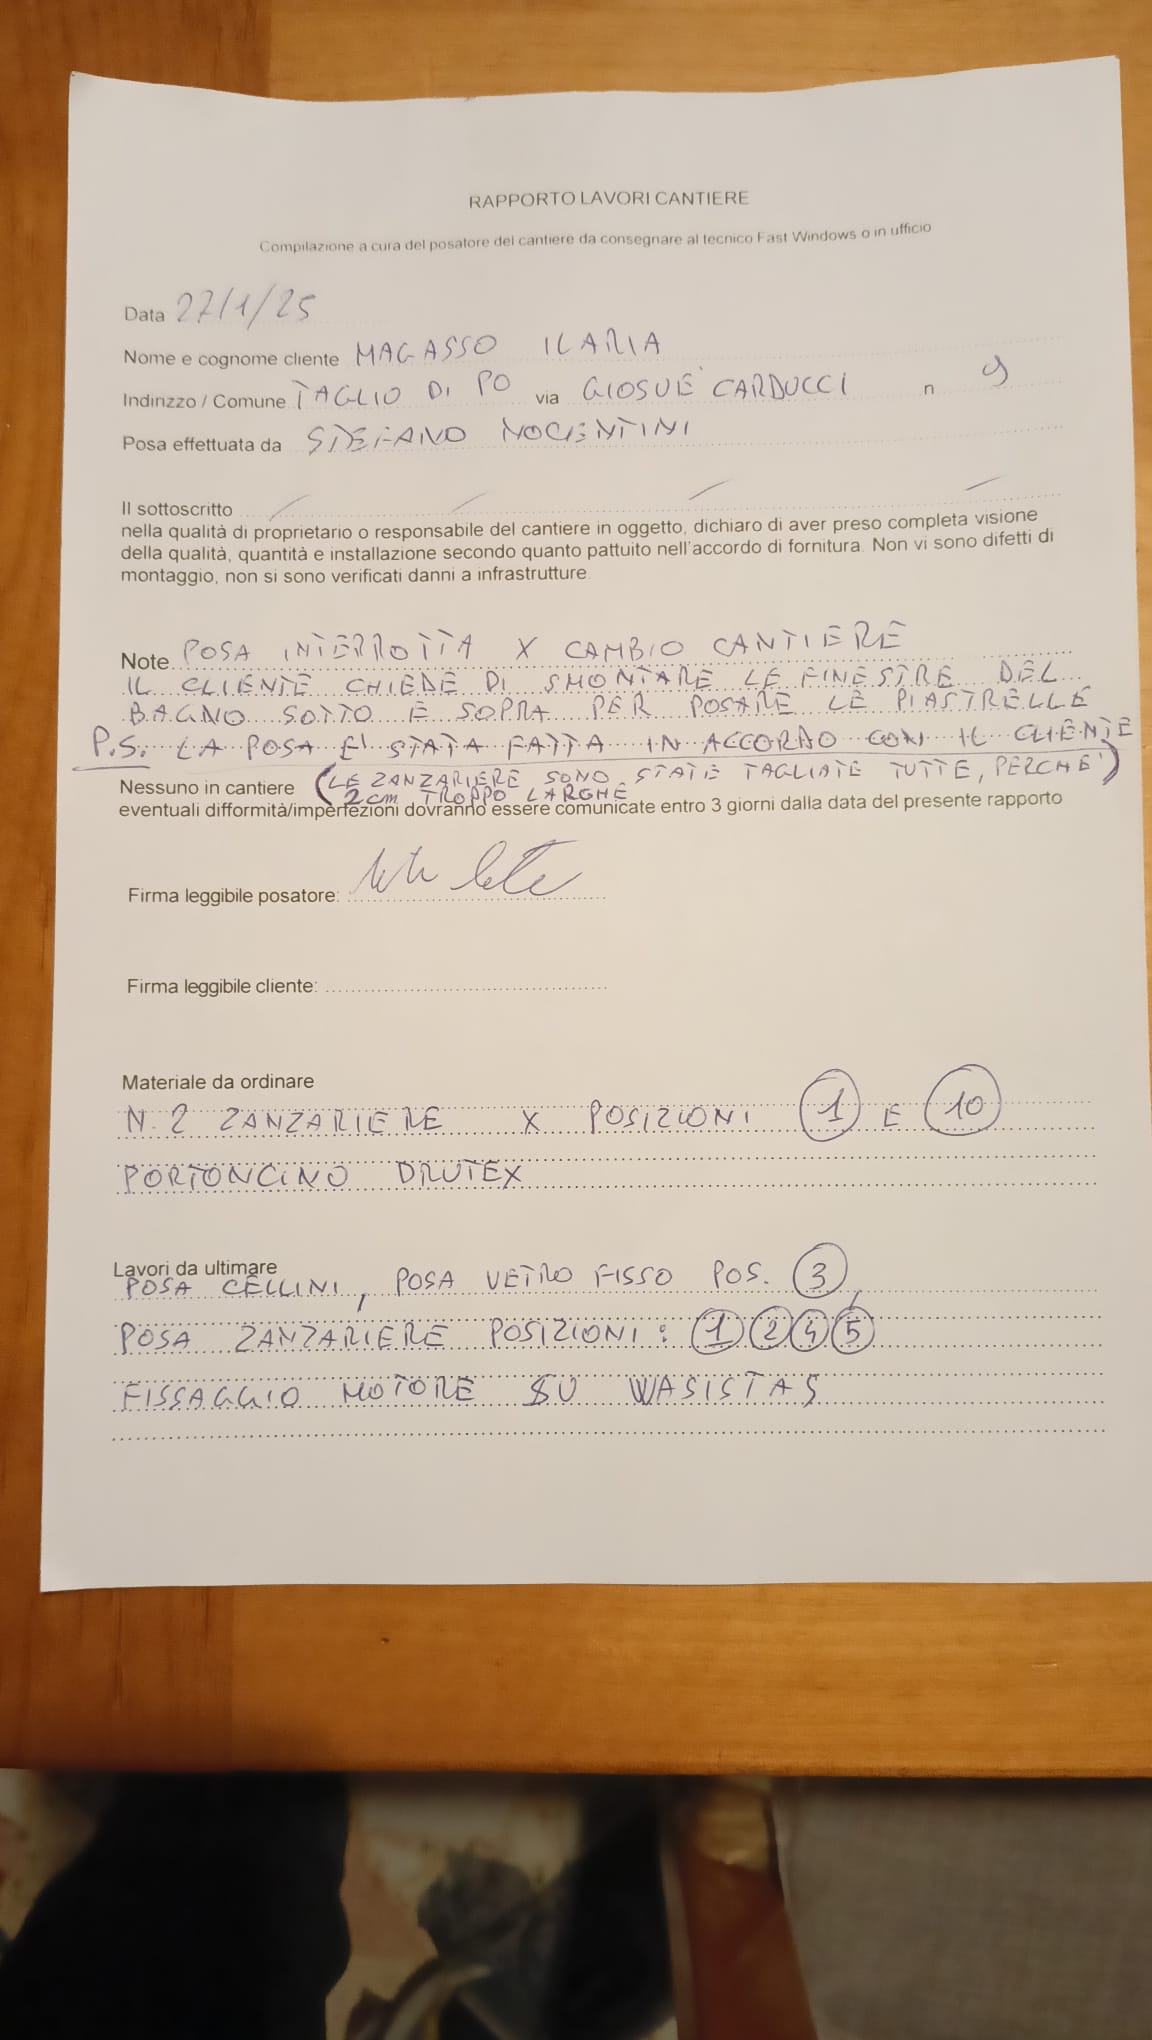 RAPPORTO LAVORI CANTIERE
Compilazione a cura del posatore del cantiere da consegnare al tecnico Fast Windows o in ufficio
Data 27/1/25
Nome e cognome cliente MAGASSO ILARIA
Indirizzo / Comune TAGLIO DI PO via GIOSUE' CARDUCCI n 9
Posa effettuata da STEFANO NOCENTINI
Il sottoscritto
nella qualità di proprietario o responsabile del cantiere in oggetto, dichiaro di aver preso completa visione
della qualità, quantità e installazione secondo quanto pattuito nell'accordo di fornitura. Non vi sono difetti di
montaggio, non si sono verificati danni a infrastrutture.
Note POSA INTERROTTA X CAMBIO CANTIERE
IL CLIENTE CHIEDE DI SMONTARE LE FINESTRE DEL
BAGNO SOTTO E SOPRA PER POSARE LE PIASTRELLE
P.S. LA POSA E' STATA FATTA IN ACCORDO CON IL CLIENTE
Nessuno in cantiere (LE ZANZARIERE SONO STATE TAGLIATE TUTTE, PERCHE'
2 cm TROPPO LARGHE)
eventuali difformità/imperfezioni dovranno essere comunicate entro 3 giorni dalla data del presente rapporto
Firma leggibile posatore:
Firma leggibile cliente:
Materiale da ordinare
N. 2 ZANZARIERE X POSIZIONI 1 E 10
PORTONCINO DRUTEX
Lavori da ultimare
POSA CELLINI, POSA VETRO FISSO POS. 3,
POSA ZANZARIERE POSIZIONI: 1 2 4 5
FISSAGGIO MOTORE SU WASISTAS